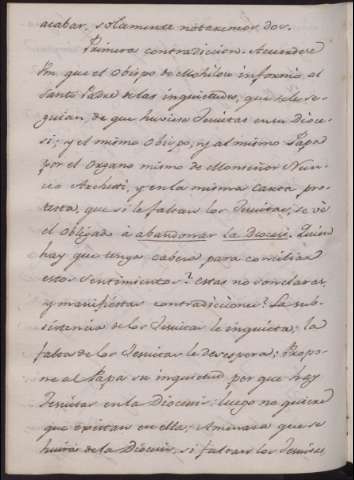 acabar, solamente notaremos dos.
Primera contradiccion. Acuerdese
Vm. que el Obispo de Mohilow informa al
Santo Padre de las inquietudes, que se le se-
guian, de que huviese Jesuitas en su Dioce-
si; y el mismo Obispo, y al mismo Papa
por el Organo mismo de Monseñor Nun-
cio Archeti, y en la misma Carta pro-
texta, que si le faltan los Jesuitas, se vè
el Obligado à abandonar la Diocesi. Quien
hay que tenga cabeza para conciliar
estos sentimientos? estas no son claras,
y manifiestas contradiciones? La sub-
sistencia de los Jesuitas le inquieta; la
falta de los Jesuitas le desespera; Propo-
ne al Papa su inquietud por que hay
Jesuitas en la Diocesi: luego no quiere
que existan en ella; Amenaza que se
huirà de la Diocesis, si faltan los Jesuitas